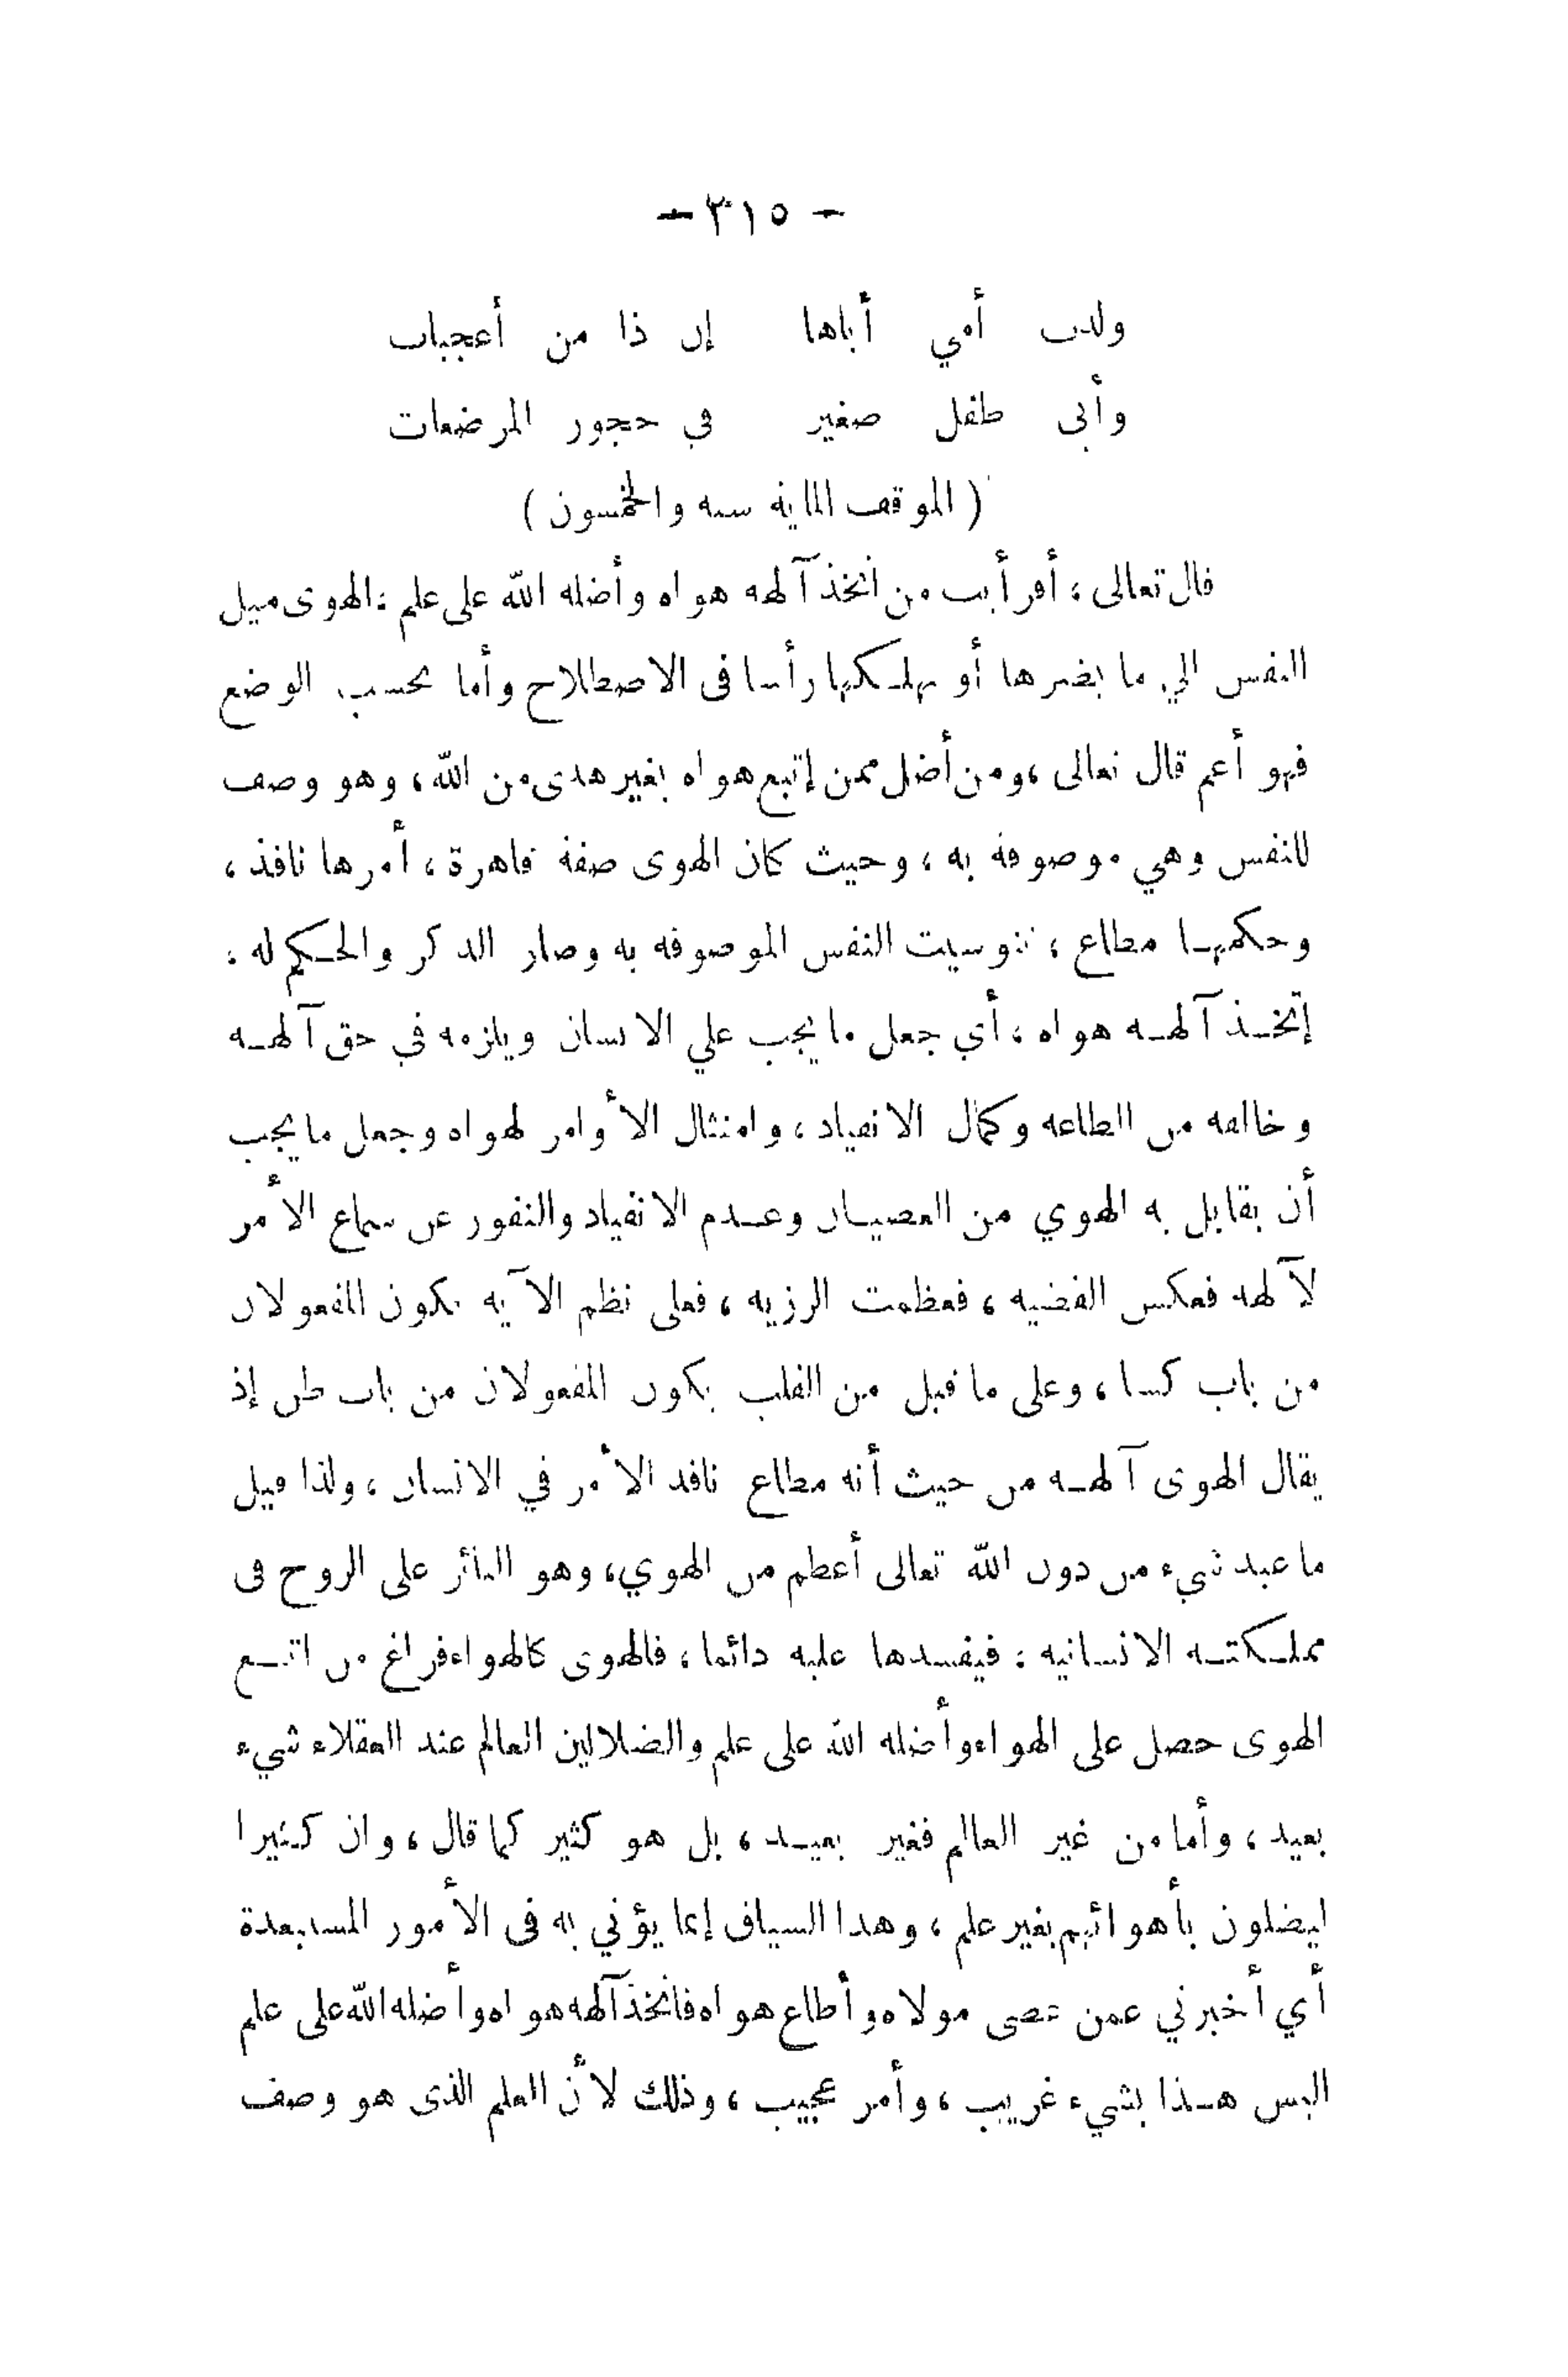 - ٣١٥ -
ولدت أمي أباها إن ذا من أعجبات
وأبى طفل صغير في حجور المرضعات
( الموقف الماية سنه والخمسون )
قال تعالى ، أفرأيت من اتخذ آلهه هواه وأضله الله على علم : الهوى ميل
النفس الي ما يضرها أو يهلكها رأسا فى الاصطلاح وأما بحسب الوضع
فهو أعم قال تعالى ، ومن أضل ممن إتبع هواه بغير هدى من الله ، وهو وصف
للنفس وهي موصوفة به ، وحيث كان الهوى صفة قاهرة ، أمرها نافذ ،
وحكمها مطاع ، تنوسيت النفس الموصوفه به وصار الذكر والحكم له :
إتخذ آلهه هواه ، أي جعل ما يجب علي الانسان ويلزمه في حق آلهه
وخالقه من الطاعه وكمال الانقياد ، وامتثال الأوامر لهواه وجعل ما يجب
أن يقابل به الهوي من العصيان وعدم الانقياد والنفور عن سماع الأمر
لآلهه فعكس القضيه ، فعظمت الرزيه ، فعلى نظم الآيه يكون المفعولان
من باب كسا ، وعلى ما قيل من القلب يكون المفعولان من باب ظن إذ
يقال الهوى آلهه من حيث أنه مطاع نافذ الأمر في الانسان ، ولذا قيل
ما عبد شيء من دون الله تعالى أعظم من الهوي ، وهو الثائر على الروح فى
مملكته الانسانيه : فيفسدها عليه دائما ، فالهوى كالهواء فراغ من اتبع
الهوى حصل على الهواء وأضله الله على علم والضلال من العالم عند العقلاء شيء
بعيد ، وأما من غير العالم فغير بعيد ، بل هو كثير كما قال ، وان كثيرا
ليضلون بأهوائهم بغير علم ، وهذا السياق إنما يؤتي به فى الأمور المستبعدة
أي أخبرني عمن عصى مولاه وأطاع هواه فاتخذ آلهه هواه وأضله الله على علم
اليس هذا بشيء غريب ، وأمر عجيب ، وذلك لأن العلم الذى هو وصف